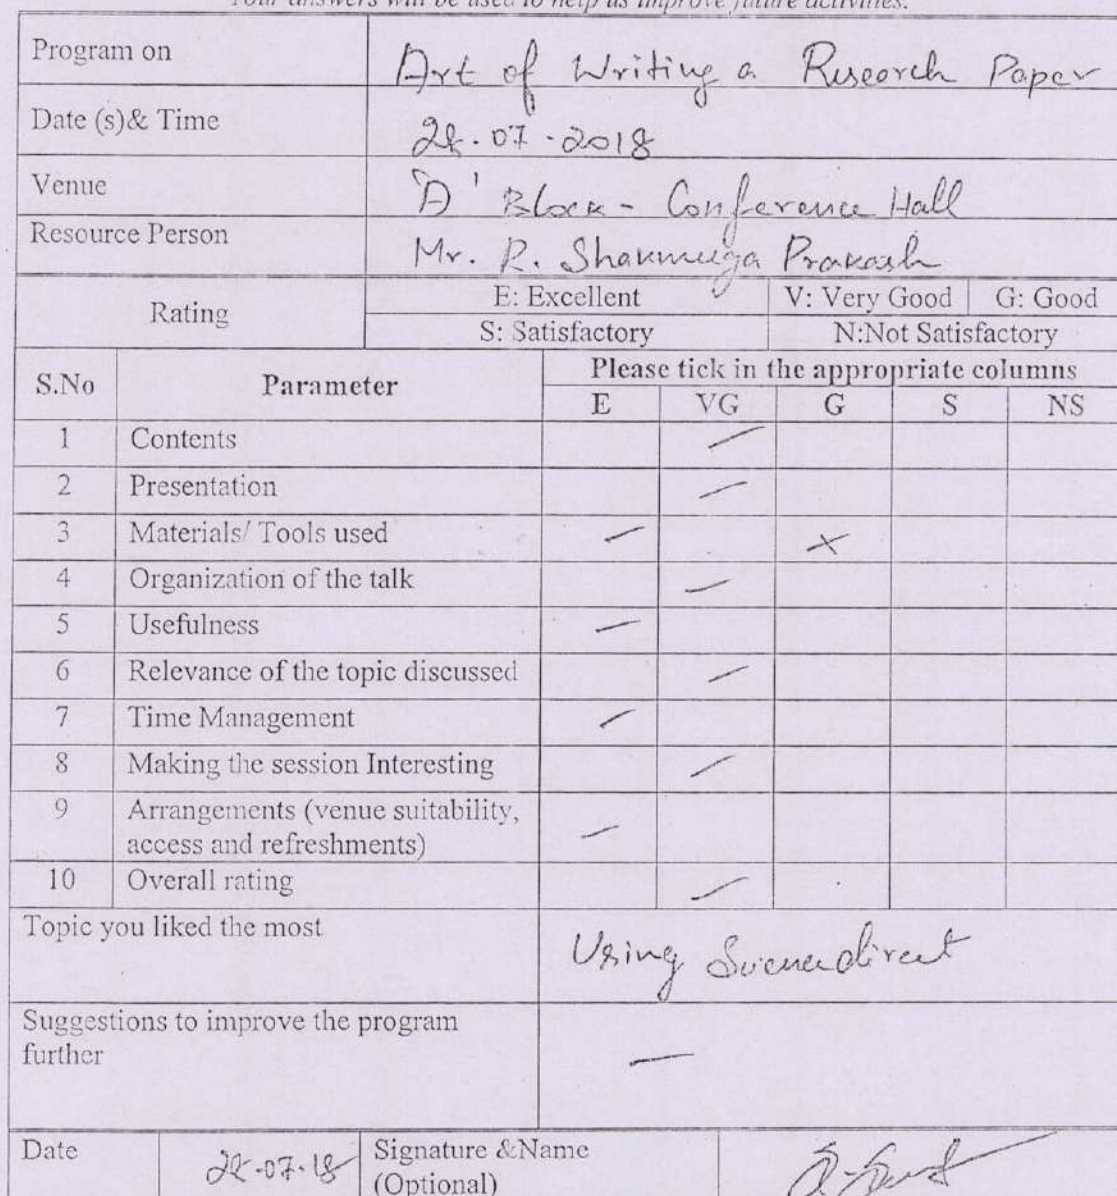 Your answers will be used to help us improve future activities.
Program on Art of Writing a Research Paper
Date (s)& Time 28-07-2018
Venue 'A' Block - Conference Hall
Resource Person Mr. R. Shanmuga Prakash
Rating E: Excellent V: Very Good G: Good
S: Satisfactory N:Not Satisfactory
S.No Parameter Please tick in the appropriate columns
E VG G S NS
1 Contents
2 Presentation
3 Materials/ Tools used
4 Organization of the talk
5 Usefulness
6 Relevance of the topic discussed
7 Time Management
8 Making the session Interesting
9 Arrangements (venue suitability,
access and refreshments)
10 Overall rating
Topic you liked the most Using Sciencedirect
Suggestions to improve the program
further —
Date 28-07-18 Signature &Name
(Optional)